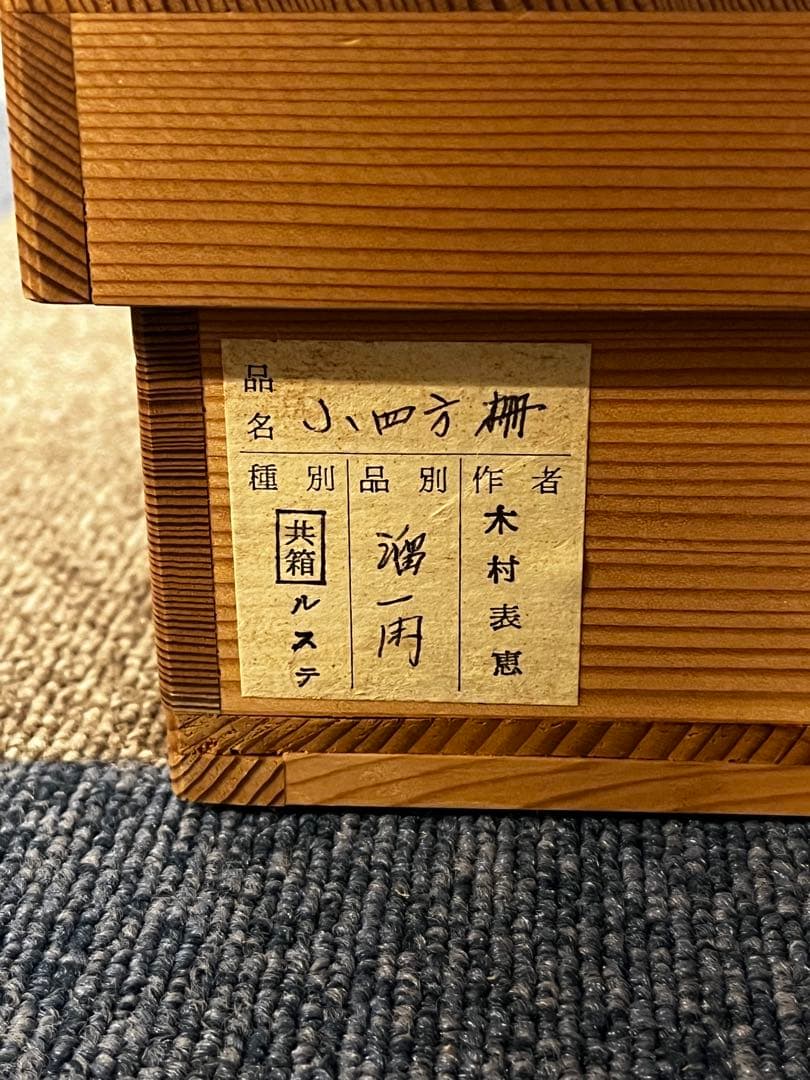 品名 小四方棚
種別
共箱
ルステ
品別
溜一
作者
木村表恵